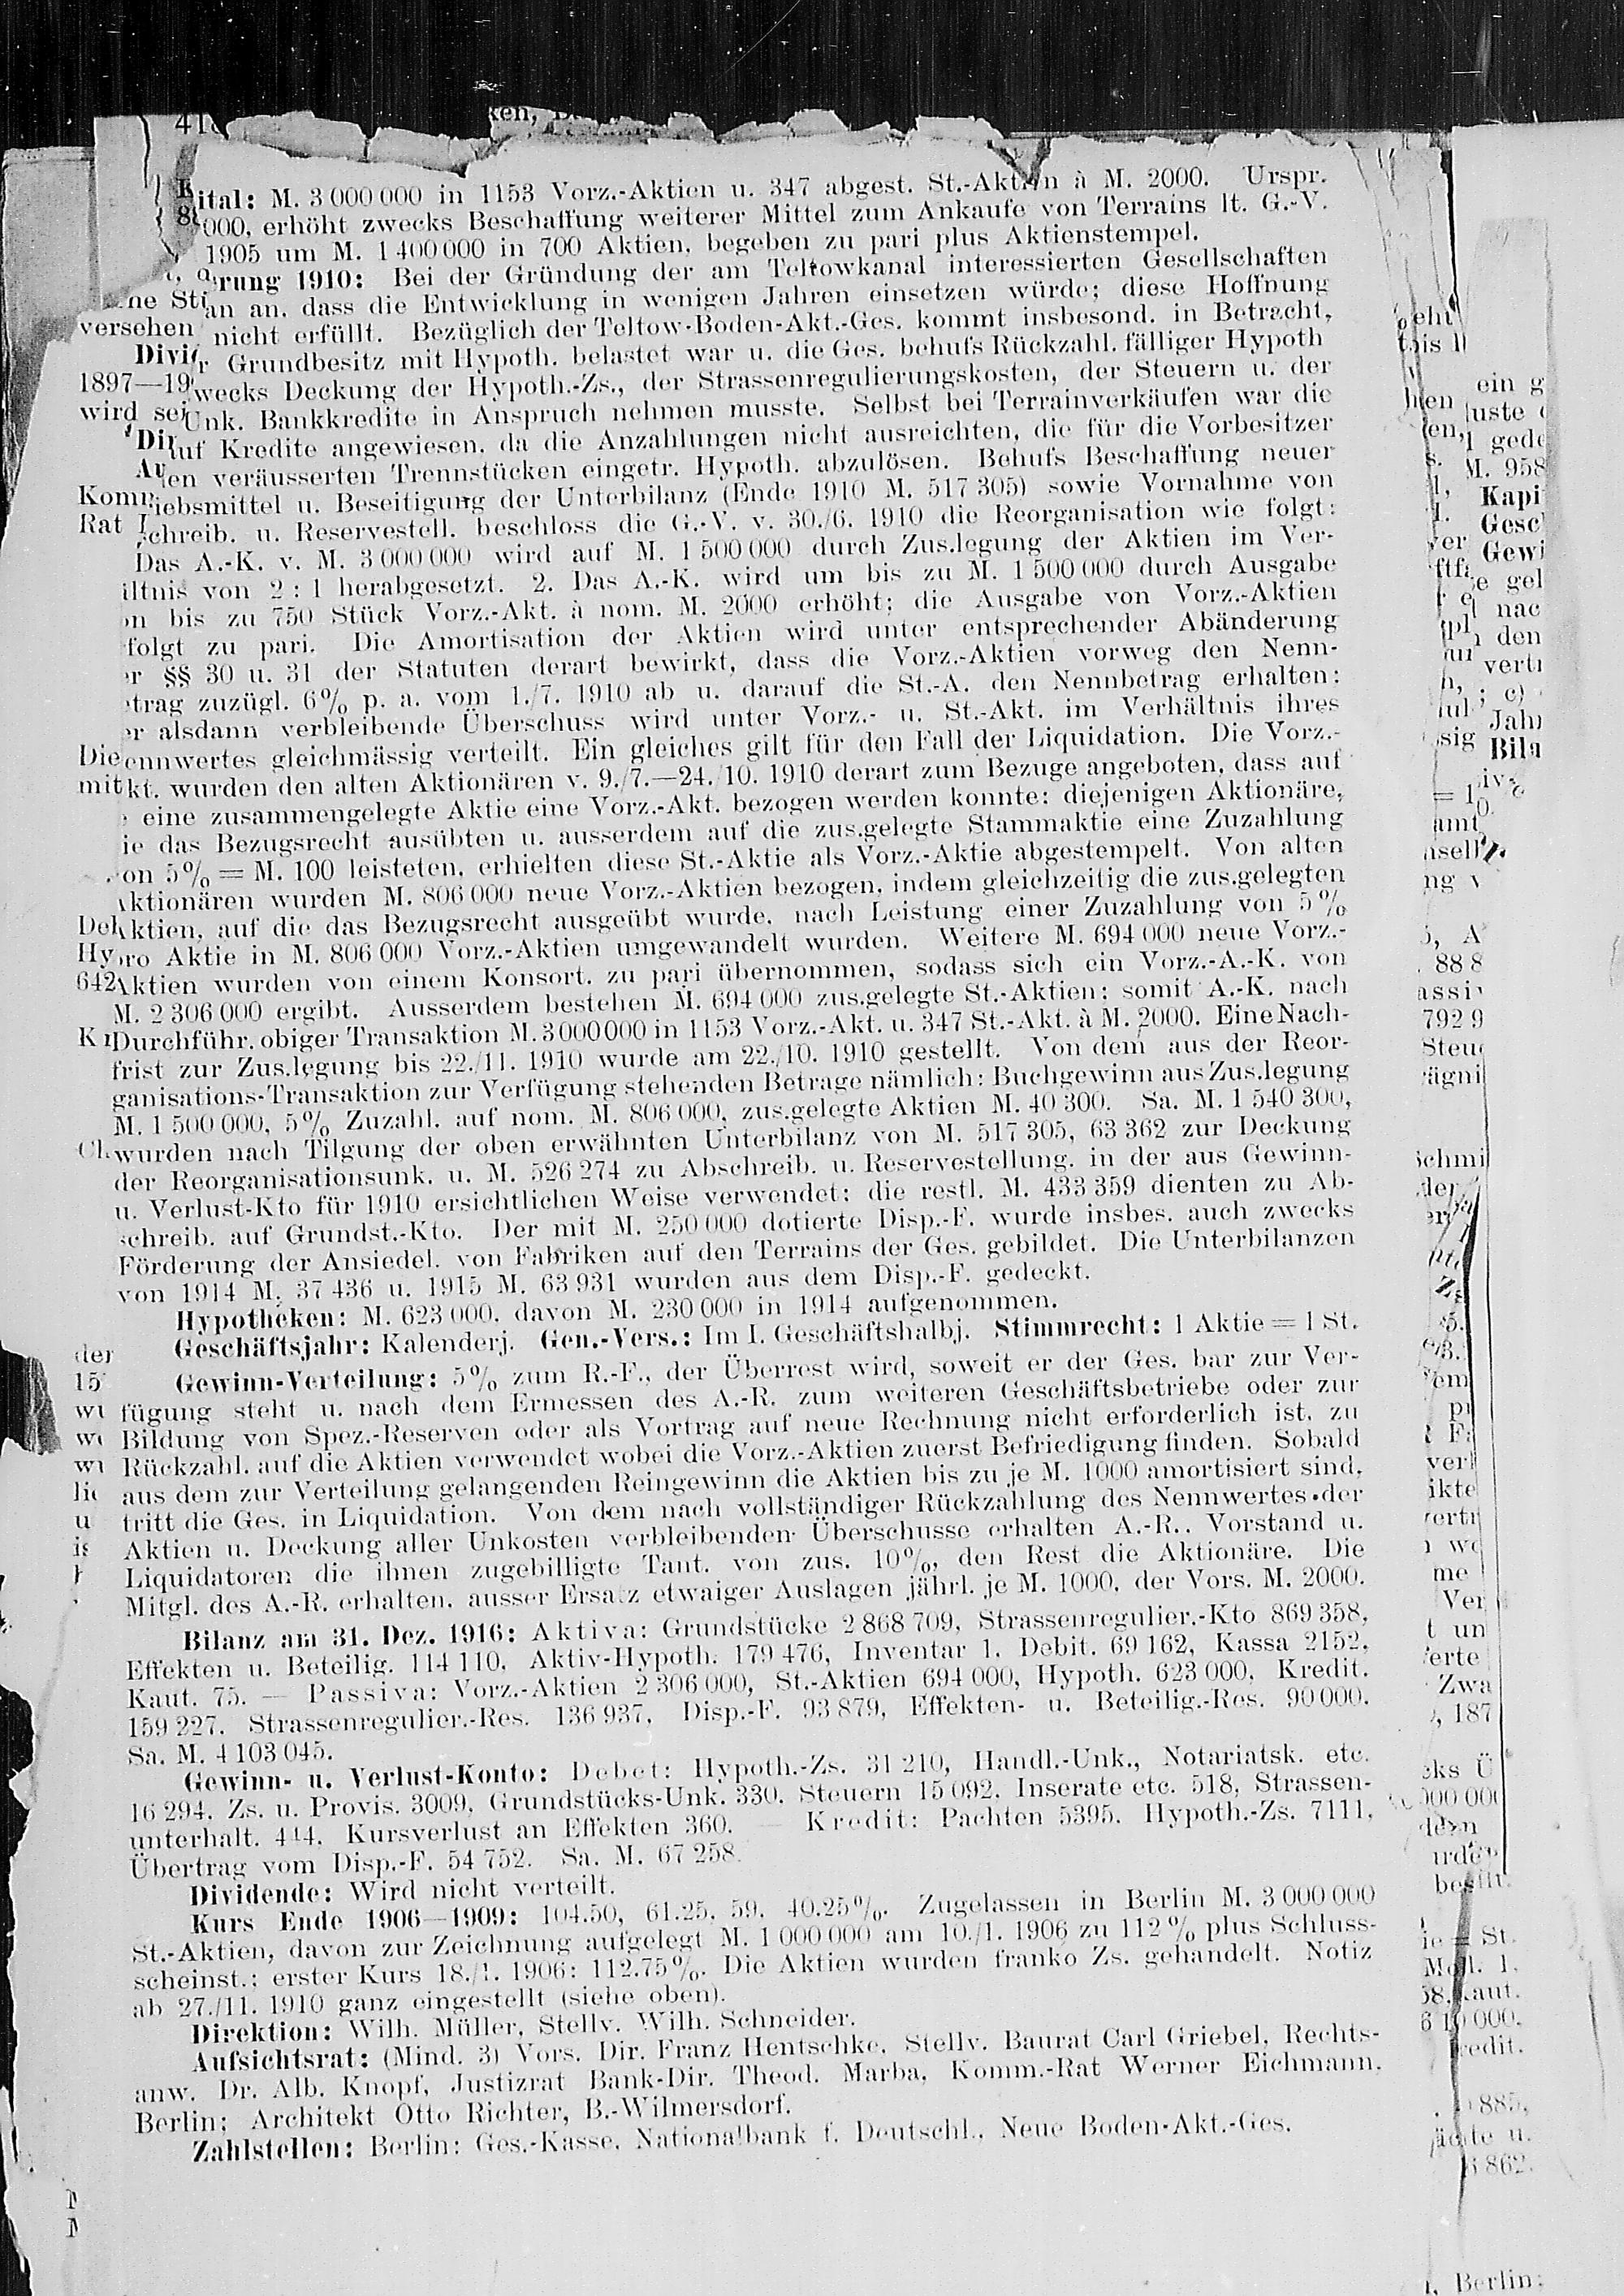 ital: M. 3 000 000 in 1153 Vorz.-Aktien u. 347 abgest. St.-Aktien à M. 2000. Urspr.
000, erhöht zwecks Beschaffung weiterer Mittel zum Ankaufe von Terrains lt. G.-V.
1905 um M. 1 400 000 in 700 Aktien, begeben zu pari plus Aktienstempel.
erung 1910: Bei der Gründung der am Teltowkanal interessierten Gesellschaften
an an, dass die Entwicklung in wenigen Jahren einsetzen würde; diese Hoffnung
nicht erfüllt. Bezüglich der Teltow-Boden-Akt.-Ges. kommt insbesond. in Betracht,
r Grundbesitz mit Hypoth. belastet war u. die Ges. behufs Rückzahl. fälliger Hypoth
wecks Deckung der Hypoth.-Zs., der Strassenregulierungskosten, der Steuern u. der
Unk. Bankkredite in Anspruch nehmen musste. Selbst bei Terrainverkäufen war die
auf Kredite angewiesen, da die Anzahlungen nicht ausreichten, die für die Vorbesitzer
en veräusserten Trennstücken eingetr. Hypoth. abzulösen. Behufs Beschaffung neuer
iebsmittel u. Beseitigung der Unterbilanz (Ende 1910 M. 517 305) sowie Vornahme von
schreib. u. Reservestell. beschloss die G.-V. v. 30./6. 1910 die Reorganisation wie folgt:
Das A.-K. v. M. 3 000 000 wird auf M. 1 500 000 durch Zus.legung der Aktien im Ver-
ältnis von 2 : 1 herabgesetzt. 2. Das A.-K. wird um bis zu M. 1 500 000 durch Ausgabe
on bis zu 750 Stück Vorz.-Akt. à nom. M. 2000 erhöht; die Ausgabe von Vorz.-Aktien
folgt zu pari. Die Amortisation der Aktien wird unter entsprechender Abänderung
er §§ 30 u. 31 der Statuten derart bewirkt, dass die Vorz.-Aktien vorweg den Nenn-
etrag zuzügl. 6% p. a. vom 1./7. 1910 ab u. darauf die St.-A. den Nennbetrag erhalten;
er alsdann verbleibende Überschuss wird unter Vorz.- u. St.-Akt. im Verhältnis ihres
ennwertes gleichmässig verteilt. Ein gleiches gilt für den Fall der Liquidation. Die Vorz.-
kt. wurden den alten Aktionären v. 9./7.—24./10. 1910 derart zum Bezuge angeboten, dass auf
eine zusammengelegte Aktie eine Vorz.-Akt. bezogen werden konnte; diejenigen Aktionäre,
ie das Bezugsrecht ausübten u. ausserdem auf die zus.gelegte Stammaktie eine Zuzahlung
on 5% = M. 100 leisteten, erhielten diese St.-Aktie als Vorz.-Aktie abgestempelt. Von alten
Aktionären wurden M. 806 000 neue Vorz.-Aktien bezogen, indem gleichzeitig die zus.gelegten
Aktien, auf die das Bezugsrecht ausgeübt wurde, nach Leistung einer Zuzahlung von 5%
pro Aktie in M. 806 000 Vorz.-Aktien umgewandelt wurden. Weitere M. 694 000 neue Vorz.-
Aktien wurden von einem Konsort. zu pari übernommen, sodass sich ein Vorz.-A.-K. von
M. 2 306 000 ergibt. Ausserdem bestehen M. 694 000 zus.gelegte St.-Aktien; somit A.-K. nach
Durchführ. obiger Transaktion M. 3 000 000 in 1153 Vorz.-Akt. u. 347 St.-Akt. à M. 2000. Eine Nach-
frist zur Zus.legung bis 22./11. 1910 wurde am 22./10. 1910 gestellt. Von dem aus der Reor-
ganisations-Transaktion zur Verfügung stehenden Betrage nämlich: Buchgewinn aus Zus.legung
M. 1 500 000, 5% Zuzahl. auf nom. M. 806 000, zus.gelegte Aktien M. 40 300. Sa. M. 1 540 300,
wurden nach Tilgung der oben erwähnten Unterbilanz von M. 517 305, 63 362 zur Deckung
der Reorganisationsunk. u. M. 526 274 zu Abschreib. u. Reservestellung. in der aus Gewinn-
u. Verlust-Kto für 1910 ersichtlichen Weise verwendet; die restl. M. 433 359 dienten zu Ab-
schreib. auf Grundst.-Kto. Der mit M. 250 000 dotierte Disp.-F. wurde insbes. auch zwecks
Förderung der Ansiedel. von Fabriken auf den Terrains der Ges. gebildet. Die Unterbilanzen
von 1914 M. 37 436 u. 1915 M. 63 931 wurden aus dem Disp.-F. gedeckt.
Hypotheken: M. 623 000, davon M. 230 000 in 1914 aufgenommen.
Geschäftsjahr: Kalenderj. Gen.-Vers.: Im I. Geschäftshalbj. Stimmrecht: 1 Aktie = 1 St.
Gewinn-Verteilung: 5% zum R.-F., der Überrest wird, soweit er der Ges. bar zur Ver-
fügung steht u. nach dem Ermessen des A.-R. zum weiteren Geschäftsbetriebe oder zur
Bildung von Spez.-Reserven oder als Vortrag auf neue Rechnung nicht erforderlich ist, zu
Rückzahl. auf die Aktien verwendet wobei die Vorz.-Aktien zuerst Befriedigung finden. Sobald
aus dem zur Verteilung gelangenden Reingewinn die Aktien bis zu je M. 1000 amortisiert sind,
tritt die Ges. in Liquidation. Von dem nach vollständiger Rückzahlung des Nennwertes der
Aktien u. Deckung aller Unkosten verbleibenden Überschusse erhalten A.-R., Vorstand u.
Liquidatoren die ihnen zugebilligte Tant. von zus. 10%, den Rest die Aktionäre. Die
Mitgl. des A.-R. erhalten, ausser Ersatz etwaiger Auslagen jährl. je M. 1000, der Vors. M. 2000.
Bilanz am 31. Dez. 1916: Aktiva: Grundstücke 2 868 709, Strassenregulier.-Kto 869 358,
Effekten u. Beteilig. 114 110, Aktiv-Hypoth. 179 476, Inventar 1, Debit. 69 162, Kassa 2152,
Kaut. 75. — Passiva: Vorz.-Aktien 2 306 000, St.-Aktien 694 000, Hypoth. 623 000, Kredit.
159 227, Strassenregulier.-Res. 136 937, Disp.-F. 93 879, Effekten- u. Beteilig.-Res. 90 000.
Sa. M. 4 103 045.
Gewinn- u. Verlust-Konto: Debet: Hypoth.-Zs. 31 210, Handl.-Unk., Notariatsk. etc.
16 294, Zs. u. Provis. 3009, Grundstücks-Unk. 330, Steuern 15 092, Inserate etc. 518, Strassen-
unterhalt. 444, Kursverlust an Effekten 360. — Kredit: Pachten 5395, Hypoth.-Zs. 7111,
Übertrag vom Disp.-F. 54 752. Sa. M. 67 258.
Dividende: Wird nicht verteilt.
Kurs Ende 1906—1909: 104.50, 61.25, 59, 40.25%. Zugelassen in Berlin M. 3 000 000
St.-Aktien, davon zur Zeichnung aufgelegt M. 1 000 000 am 10./1. 1906 zu 112% plus Schluss-
scheinst.; erster Kurs 18./1. 1906: 112.75%. Die Aktien wurden franko Zs. gehandelt. Notiz
ab 27./11. 1910 ganz eingestellt (siehe oben).
Direktion: Wilh. Müller, Stellv. Wilh. Schneider.
Aufsichtsrat: (Mind. 3) Vors. Dir. Franz Hentschke, Stellv. Baurat Carl Griebel, Rechts-
anw. Dr. Alb. Knopf, Justizrat Bank-Dir. Theod. Marba, Komm.-Rat Werner Eichmann,
Berlin; Architekt Otto Richter, B.-Wilmersdorf.
Zahlstellen: Berlin: Ges.-Kasse, Nationalbank f. Deutschl., Neue Boden-Akt.-Ges.